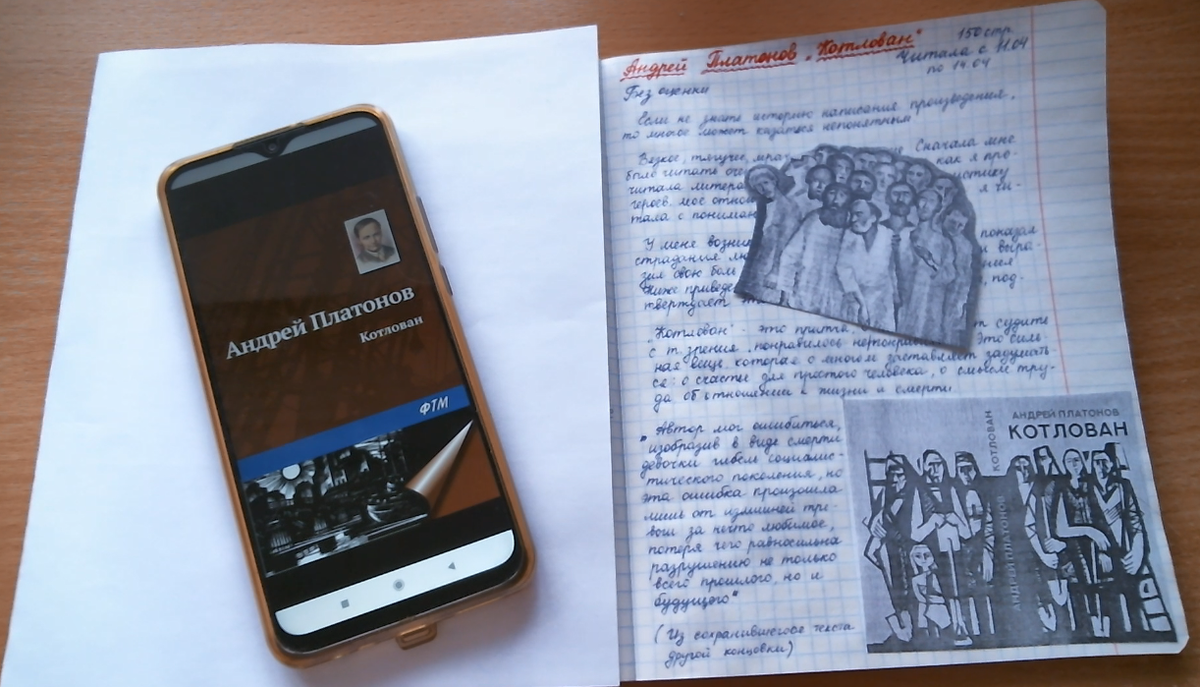 Андрей Платонов
Котлован
ФТМ
Андрей Платонов „Котлован"
150 стр
Читала с 11.04
по 14.04
Без оценки
Если не знать историю написания произведения,
то многое может казаться непонятным
Вязкое, тягучее, Сначала мне
было читать как я про-
читала литера истику
героев, моё отнош я чи-
тала с понима
У меня возник показал
страдания лю и выра-
зил свою боль
Ниже приведё , под-
тверждает
„Котлован" - это притча, т судить
с т. зрения „понравилось Это силь-
ная вещь, которая о многом заставляет задумать-
ся: о счастье для простого человека, о смысле тру-
да, об отношении к жизни и смерти.
"Автор мог ошибиться,
изобразив в виде смерти
девочки гибель социалис-
тического поколения, но
эта ошибка произошла
лишь от излишней тре-
воги за нечто любимое,
потеря чего равносильна
разрушению не только
всего прошлого, но и
будущего"
(Из сохранившегося текста
другой концовки)
АНДРЕЙ ПЛАТОНОВ
КОТЛОВАН
КОТЛОВАН
АНДРЕЙ ПЛАТОНОВ